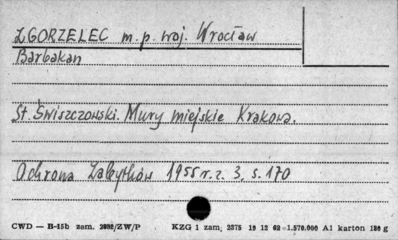 ZGORZELEC m.p. woj. Wrocław
Barbakan
St. Świszczowski. Mury miejskie Krakowa.
Ochrona Zabytków 1955 r. z. 3, s. 170
CWD — B-15b zam. 2092/ZW/P KZG 1 zam. 2375 19 12 62 1.570.000 A1 karton 180 g